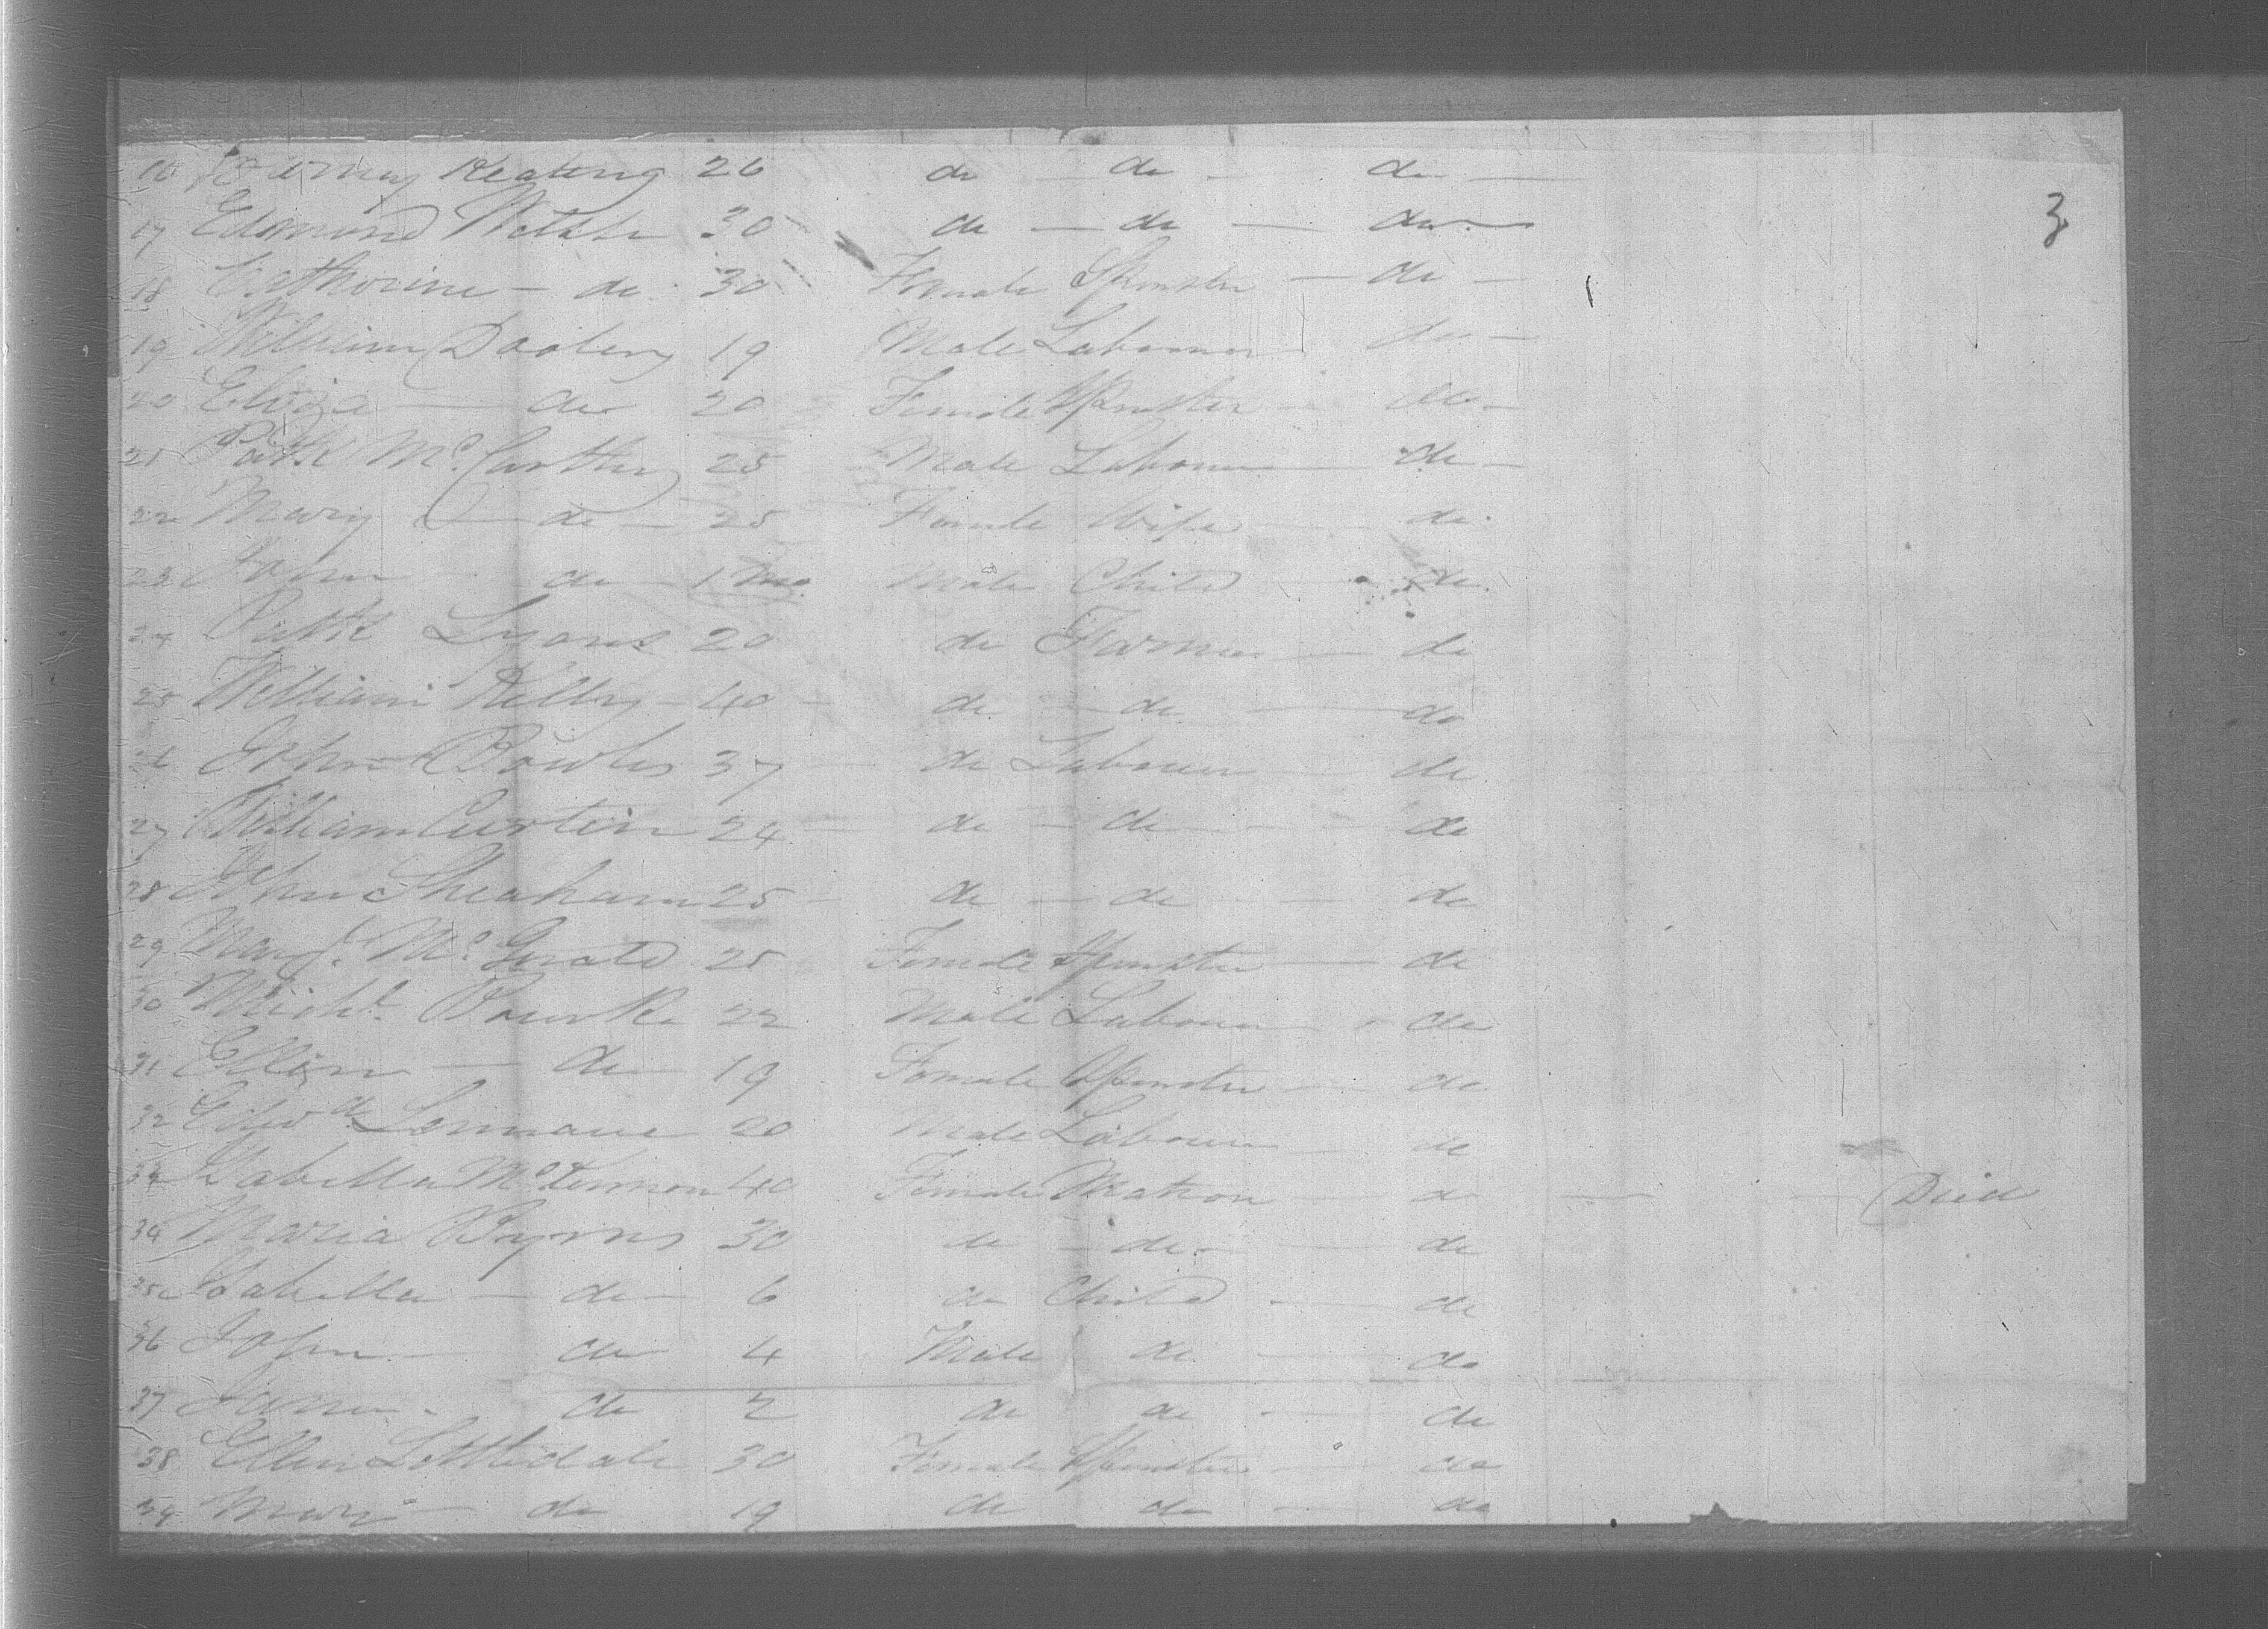 16 Keating 26 do — do — do —
3
17 Edmond Walsh 30 do — do — do —
18 Catherine — do 30 Female Spinster — do —
19 William Dooley 19 Male Labourer do —
20 Eliza — do 20 Female Spinster — do —
21 Patk McCarthy 25 Male Labourer — do —
22 Mary — do — 25 Female Wife — do
23 John — do — 1 Mo Male Child — do
24 Patk Lyons 20 do Farmer — do
25 William Kelly — 40 — do — do — do
26 John Bowles 37 — do Labourer — do
27 William Curtin 24 — do — do — do
28 John Sheahan 25 — do — do — do
29 Margt. McGerald 25 Female Spinster — do
30 Michl. Bourke 22 Male Labourer — do
31 Ellen — do — 19 Female Spinster — do
32 Edwd 20 Male Labourer — do
33 Isabella 40 Female Matron — do — Died
34 Maria Byrns 30 do — do — do
35 Isabella — do — 6 do Child — do
36 John — do 4 Male do — do
37 James — do 2 do do — do
38 Ellen Lottledale 30 Female Spinster — do
39 Mary — do 19 do do — do